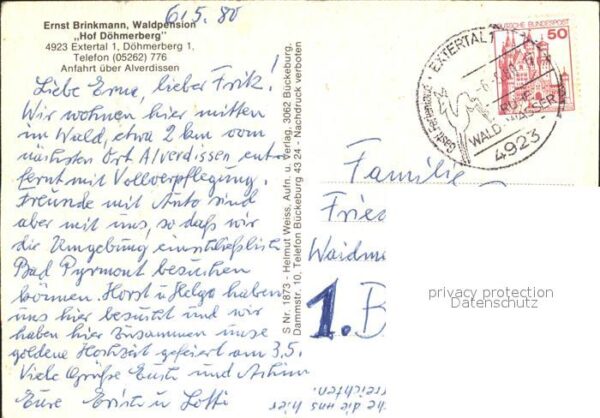 Ernst Brinkmann, Waldpension
„Hof Döhmerberg"
4923 Extertal 1, Döhmerberg 1,
Telefon (05262) 776
Anfahrt über Alverdissen
6.5.80
Liebe Erna, lieber Fritz!
Wir wohnen hier mitten
im Wald, etwa 2 km vom
nächsten Ort Alverdissen ent-
fernt mit Vollverpflegung.
Freunde mit Auto sind
aber mit uns, so daß wir
die Umgebung einschließlich
Bad Pyrmont besuchen
können. Horst u. Helga haben
uns hier besucht und wir
haben hier zusammen unse
goldene Hochzeit gefeiert am 3.5.
Viele Grüße Euch und Achim
Eure Erich u. Lotti
S Nr. 1873 - Helmut Weiss, Aufn. u. Verlag, 3062 Bückeburg,
Dammstr. 10, Telefon Bückeburg 43 24 - Nachdruck verboten
DEUTSCHE BUNDESPOST
50
EXTERTAL 1
WALD WASSER
4923
Familie
Fried
Waidm
1. B
privacy protection
Datenschutz
die uns hier